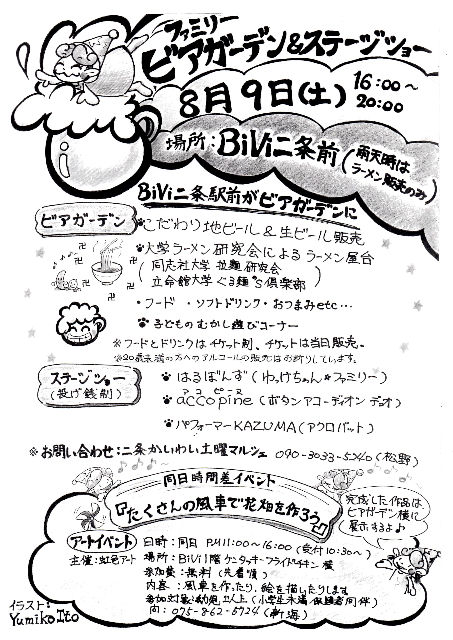 ファミリー
ビアガーデン&ステージショー
8月9日(土) 16:00～20:00
場所:BiVi二条前(雨天時はラーメン販売のみ)
BiVi二条駅前がビアガーデンに
ビアガーデン
こだわり地ビール&生ビール販売
大学ラーメン研究会によるラーメン屋台
(同志社大学 拉麺研究会
立命館大学ぐる麺's倶楽部)
・フード ・ソフトドリンク・おつまみetc…
子どものむかし遊びコーナー
※フードとドリンクはチケット制、チケットは当日販売。
※20歳未満の方へのアルコールの販売はお断りしています。
ステージショー
(投げ銭制)
はるぼんず(わっけちゃん☆ファミリー)
アコピース
accopine(ボタンアコーディオン デオ)
パフォーマーKAZUMA(アクロバット)
※お問い合わせ:二条かいわい土曜マルシェ 090-3033-5240(松野)
同日時間差イベント
『たくさんの風車で花畑を作ろう』
完成した作品は
ビアガーデン横に
展示するよ♪
アートイベント
主催:虹色アート
日時:同日 P.M11:00～16:00(受付10:30～)
場所:BiVi1階ケンタッキーフライドチキン横
参加費:無料(先着順)
内容:風車を作ったり、絵を描いたりします
参加対象:幼児以上(小学生未満 保護者同伴)
問:075-862-5724(新海)
イラスト:
Yumiko Ito